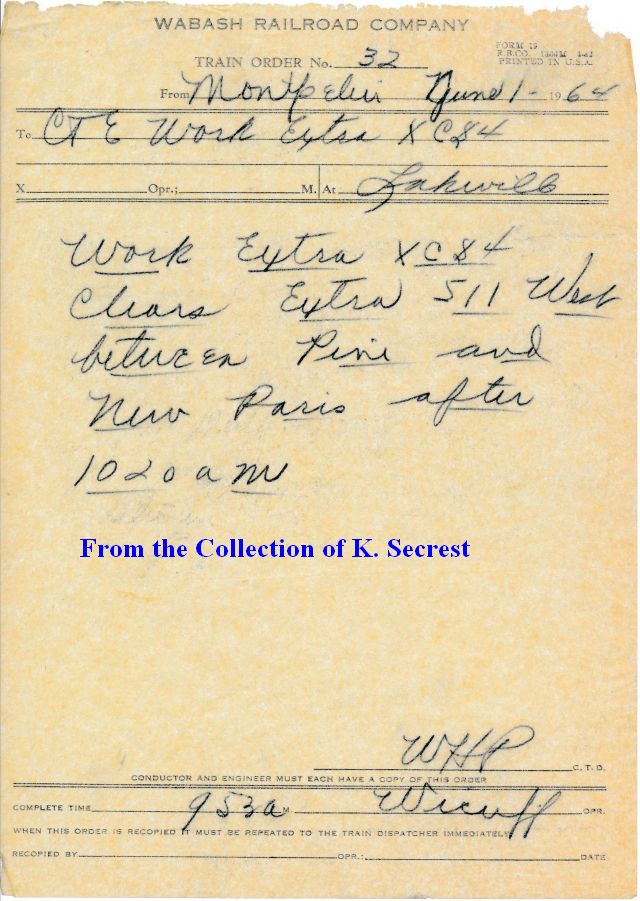 WABASH RAILROAD COMPANY
FORM 19
PRINTED IN U.S.A.
TRAIN ORDER No. 32
From Montpelier June 1- 1964
To C&E Work Extra XC84
X Opr.; M. At Lakeville
Work Extra XC84
Clears Extra 511 West
between Pine and
New Paris after
1020 am
From the Collection of K. Secrest
WHP C.T.D.
CONDUCTOR AND ENGINEER MUST EACH HAVE A COPY OF THIS ORDER
COMPLETE TIME 953a M. OPR.
WHEN THIS ORDER IS RECOPIED IT MUST BE REPEATED TO THE TRAIN DISPATCHER IMMEDIATELY
RECOPIED BY OPR.: DATE